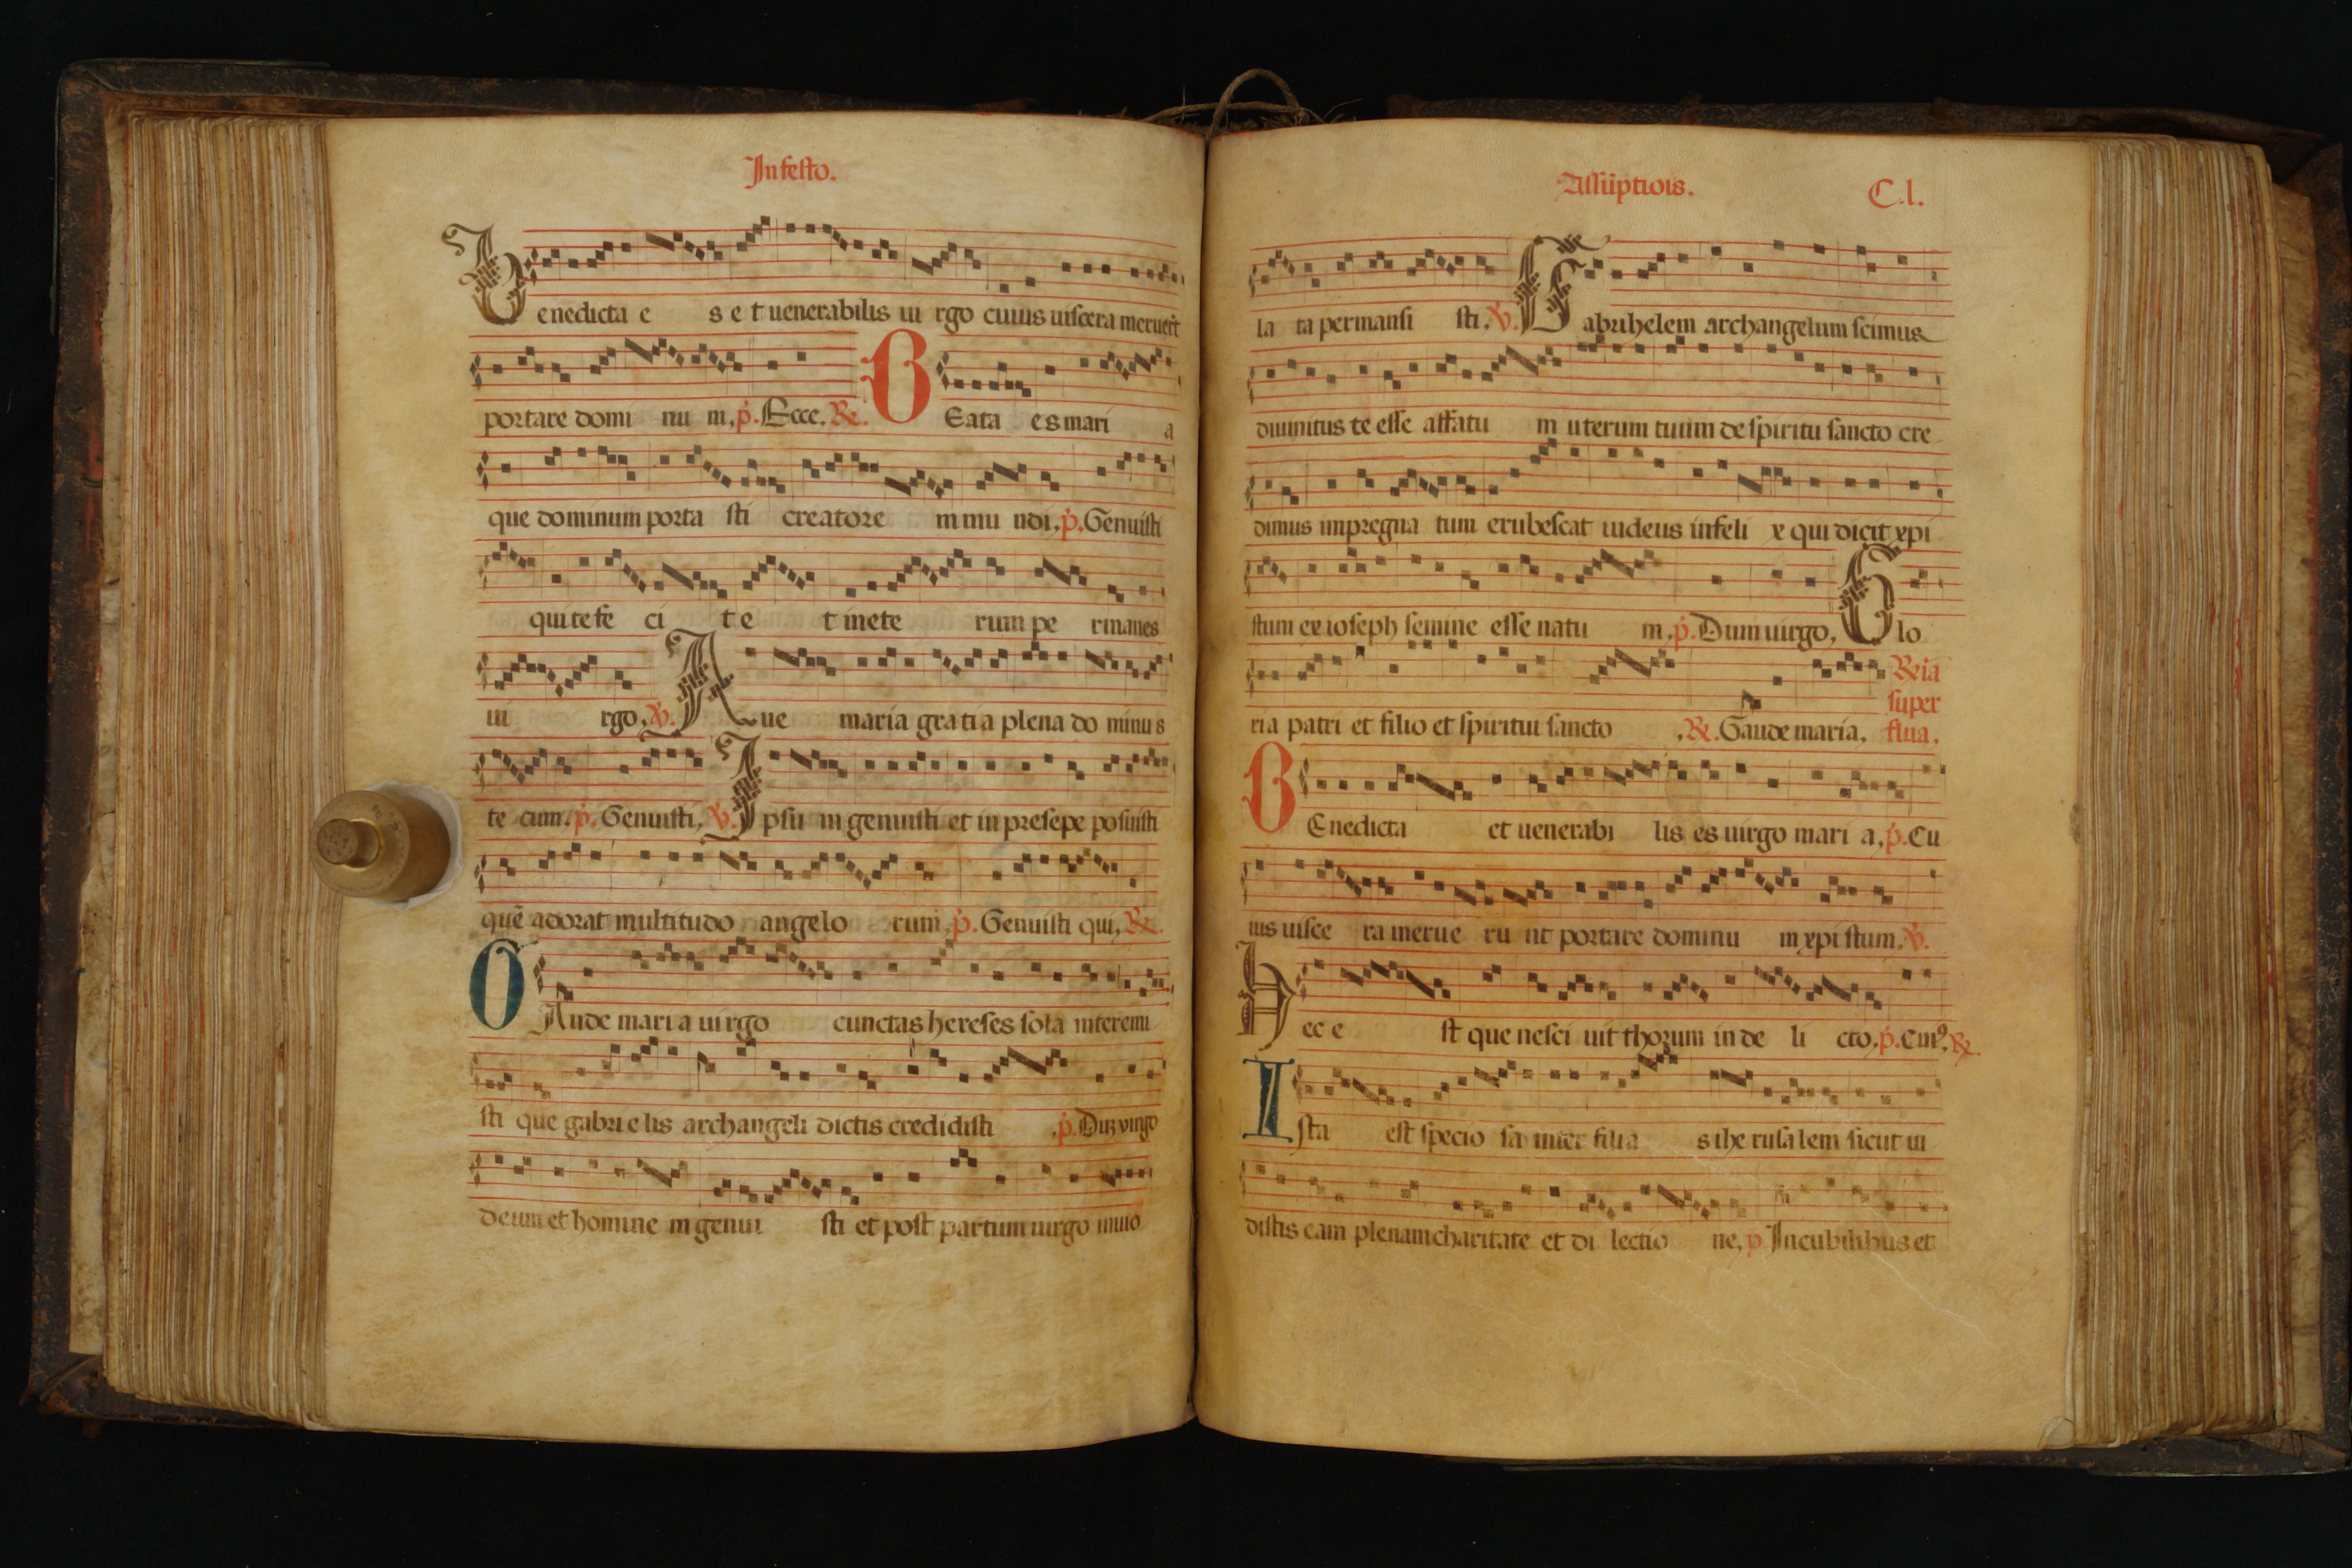 In festo.
Benedicta e s e t uenerabilis ui rgo cuius uiscera meruert̄
portare domi nu m, p̄. Ecce. R. BEata es mari a
que dominum porta sti creatore m mu ndi, p̄. Genuisti
qui te fe ci t e t in ete rum pe rmanes
ui rgo, V. Aue maria gratia plena do minus
te cum. p̄. Genuisti, V. Ipsu m genuisti et in presepe posuisti
quē adorat multitudo angelo rum p̄. Genuisti qui, R.
GAude mari a uirgo cunctas hereses sola interemi
sti que gabrielis archangeli dictis credidisti , p̄. Duz virgo
deum et homine m genui sti et post partum uirgo inuio
Assūptiōis. C.l.
la ta permansi sti. V. Gabrihelem archangelum scimus
diuinitus te esse affatu m uterum tuum de spiritu sancto cre
dimus impregna tum erubescat iudeus infeli x qui dicit xpi
stum ex ioseph semine esse natu m, p̄. Dum uirgo, Glo
ria patri et filio et spiritui sancto , R. Gaude maria,
R ia
super
flua,
BEnedicta et uenerabi lis es uirgo mari a, p̄. Cu
ius uisce ra merue ru nt portare dominu m xpi stum, V.
Hec e st que nesci uit thorum in de li cto, p̄. Cui⁹. R.
Ista est specio sa inter filia s ihe rusalem sicut ui
distis eam plenam charitate et di lectio ne, p̄ In cubilibus et